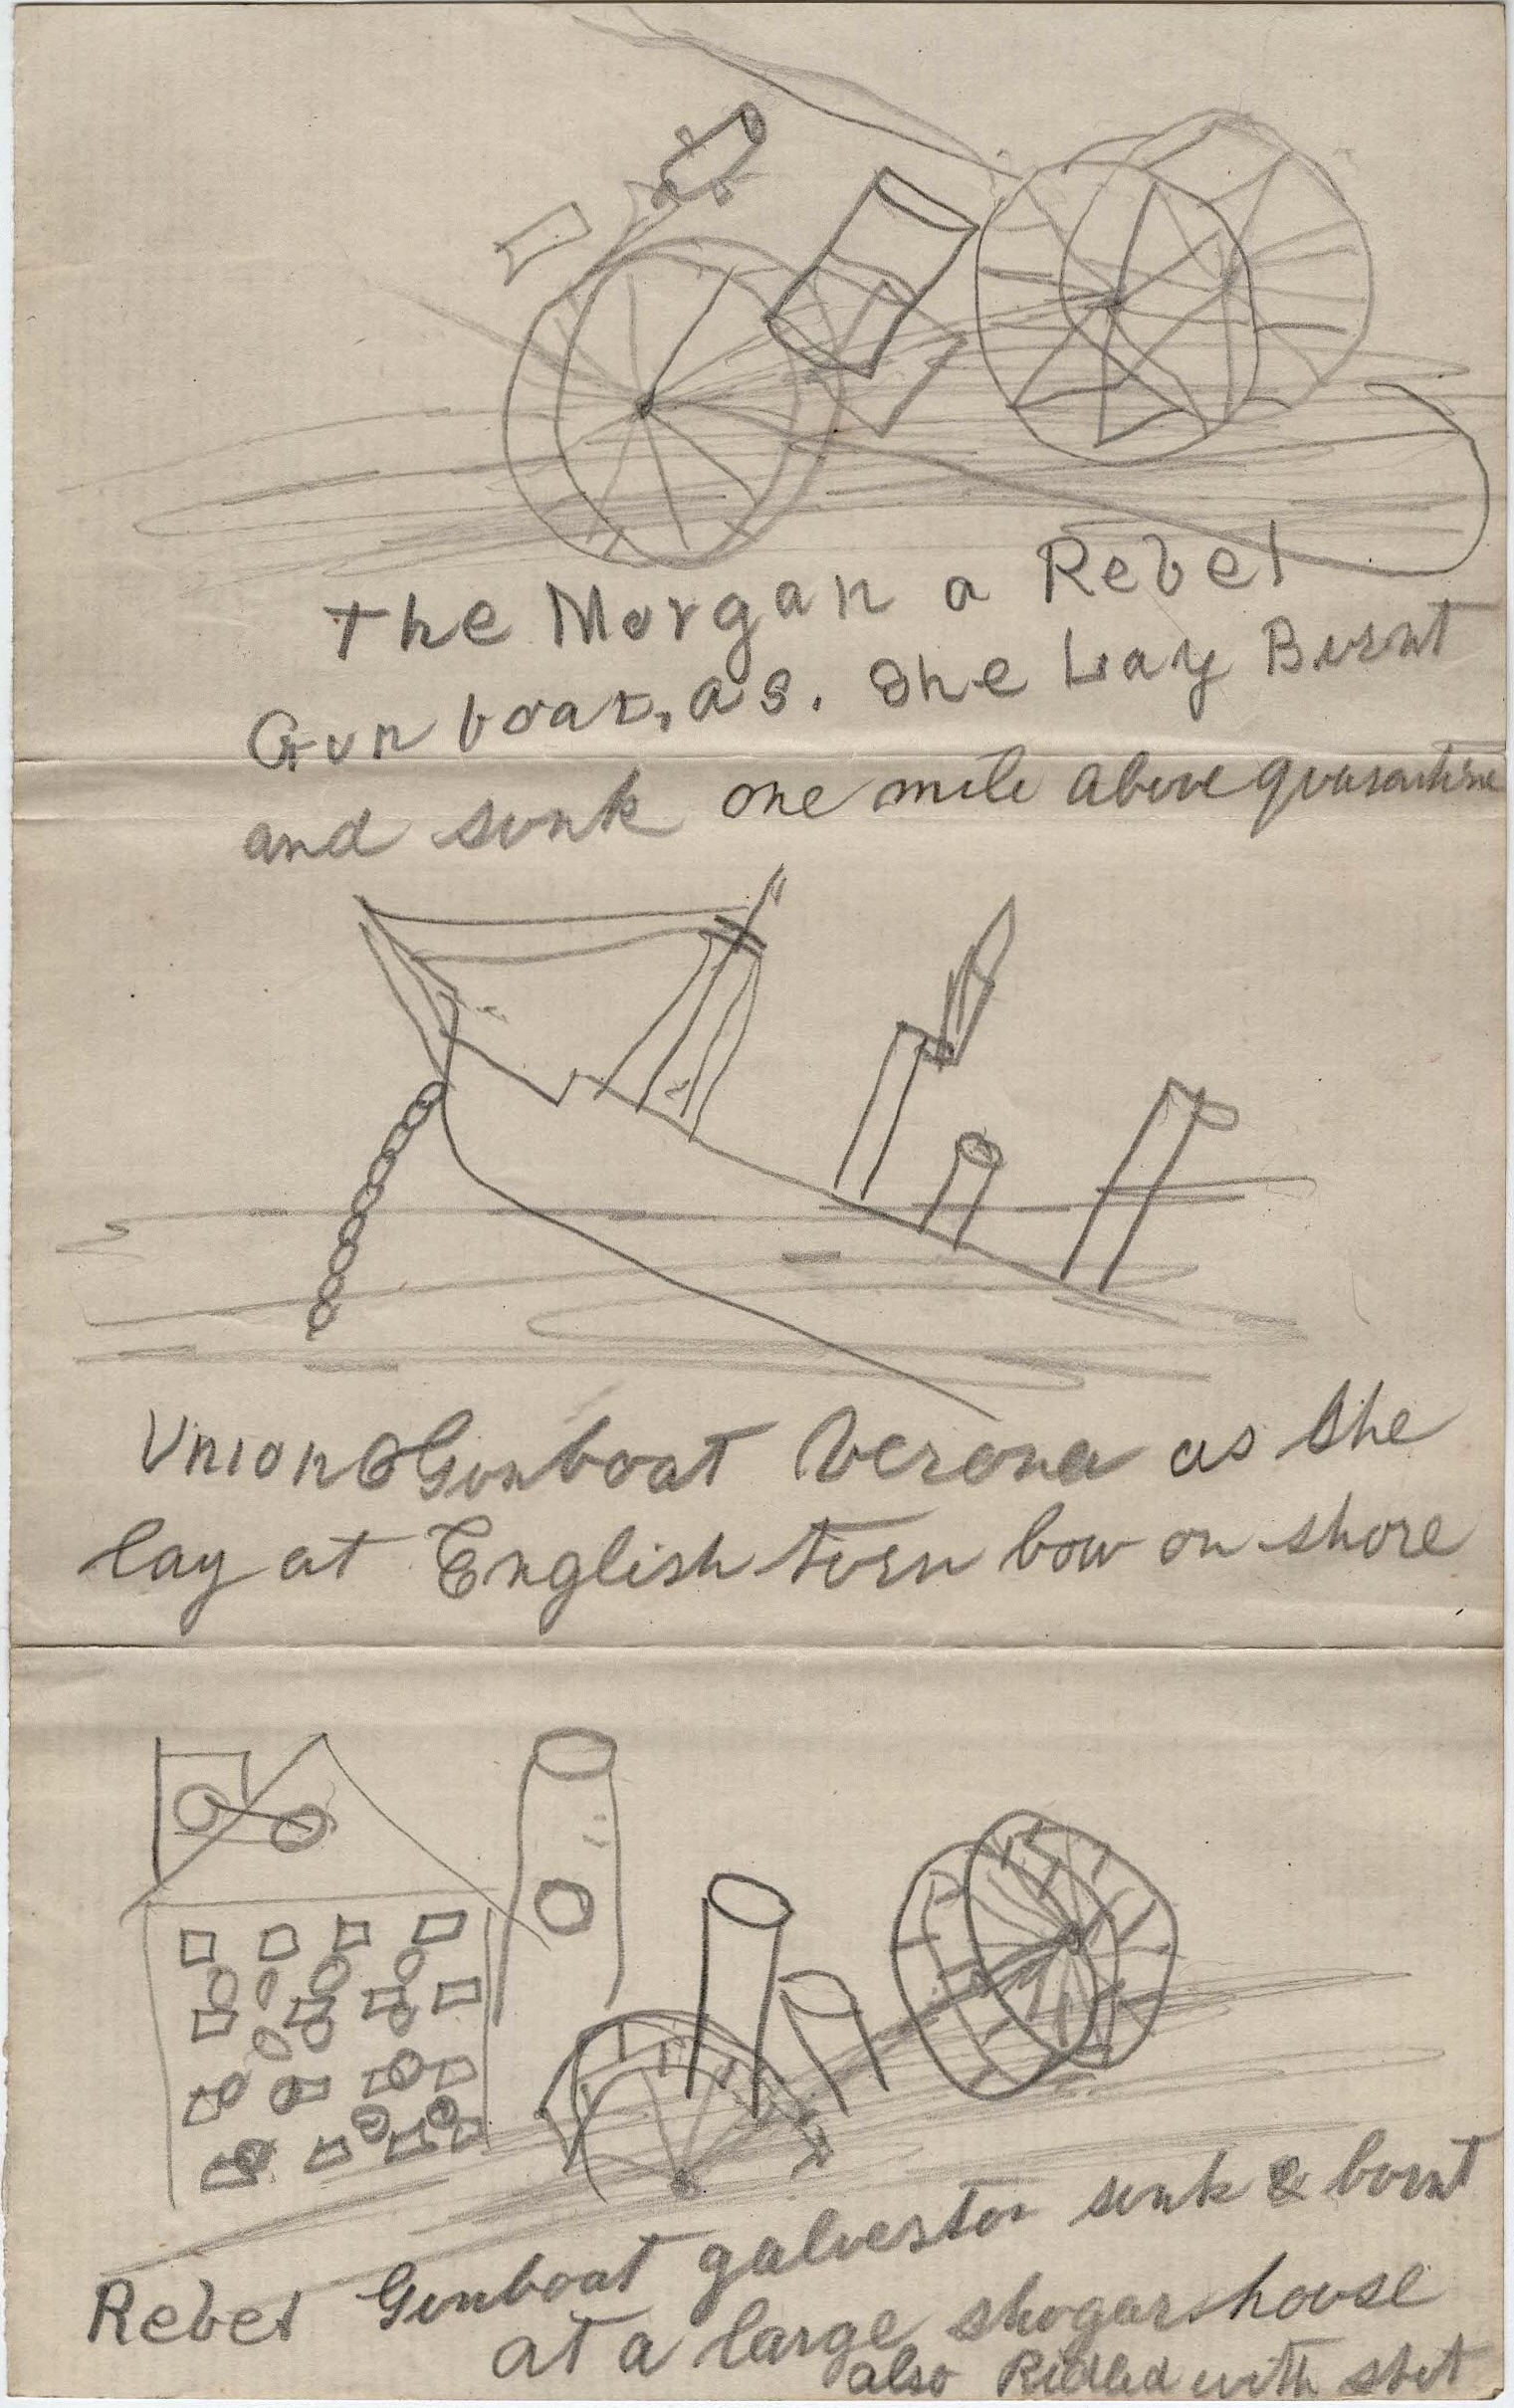 The Morgan a Rebel
Gun boat, as. She Lay Burnt
and sunk one mile above quarantine
Union Gunboat Verona as She
lay at English turn bow on shore
Rebel Gunboat galveston sunk & burnt
at a large shogar house
also Ridled with shot